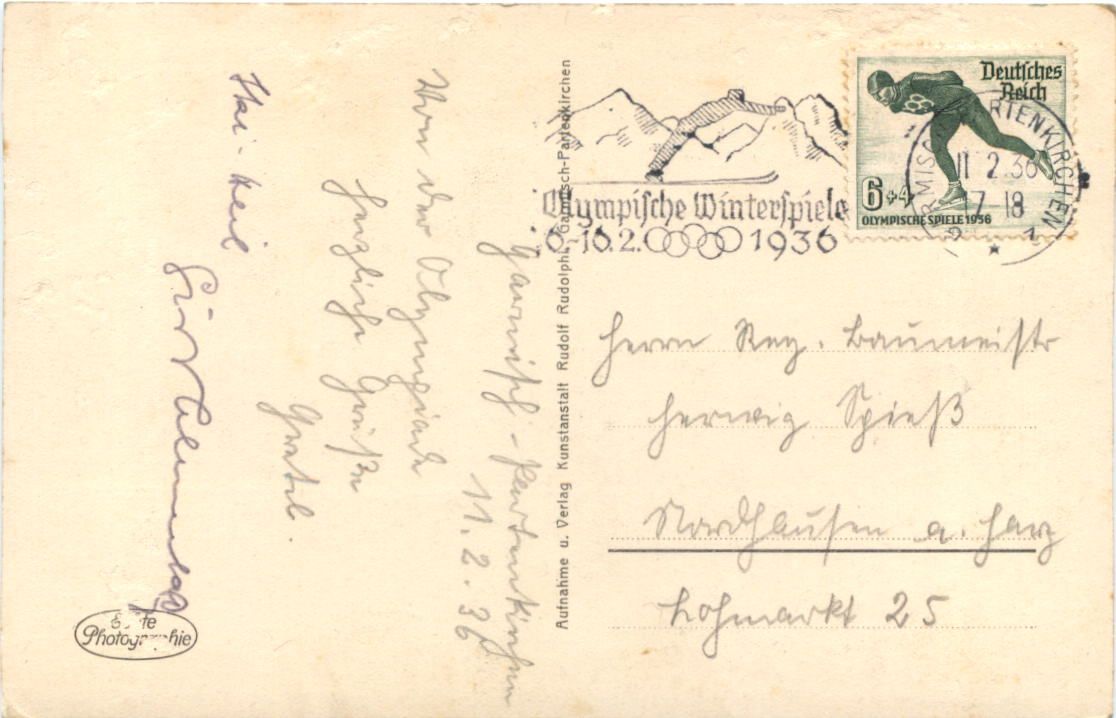 Garmisch-Partenkirchen
11.2.36
Von der Olympiade
herzliche Grüße
Gretel.
Echte
Photographie
Aufnahme u. Verlag Kunstanstalt Rudolf Rudolphi, Garmisch-Partenkirchen
Olympische Winterspiele
6.-16.2. 1936
Deutsches
Reich
6+4
OLYMPISCHE SPIELE 1936
GARMISCH-PARTENKIRCHEN
11.2.36
17-18
Herrn Reg. Baumeistr
Herwig Spieß
Nordhausen a. Harz
Lohmarkt 25